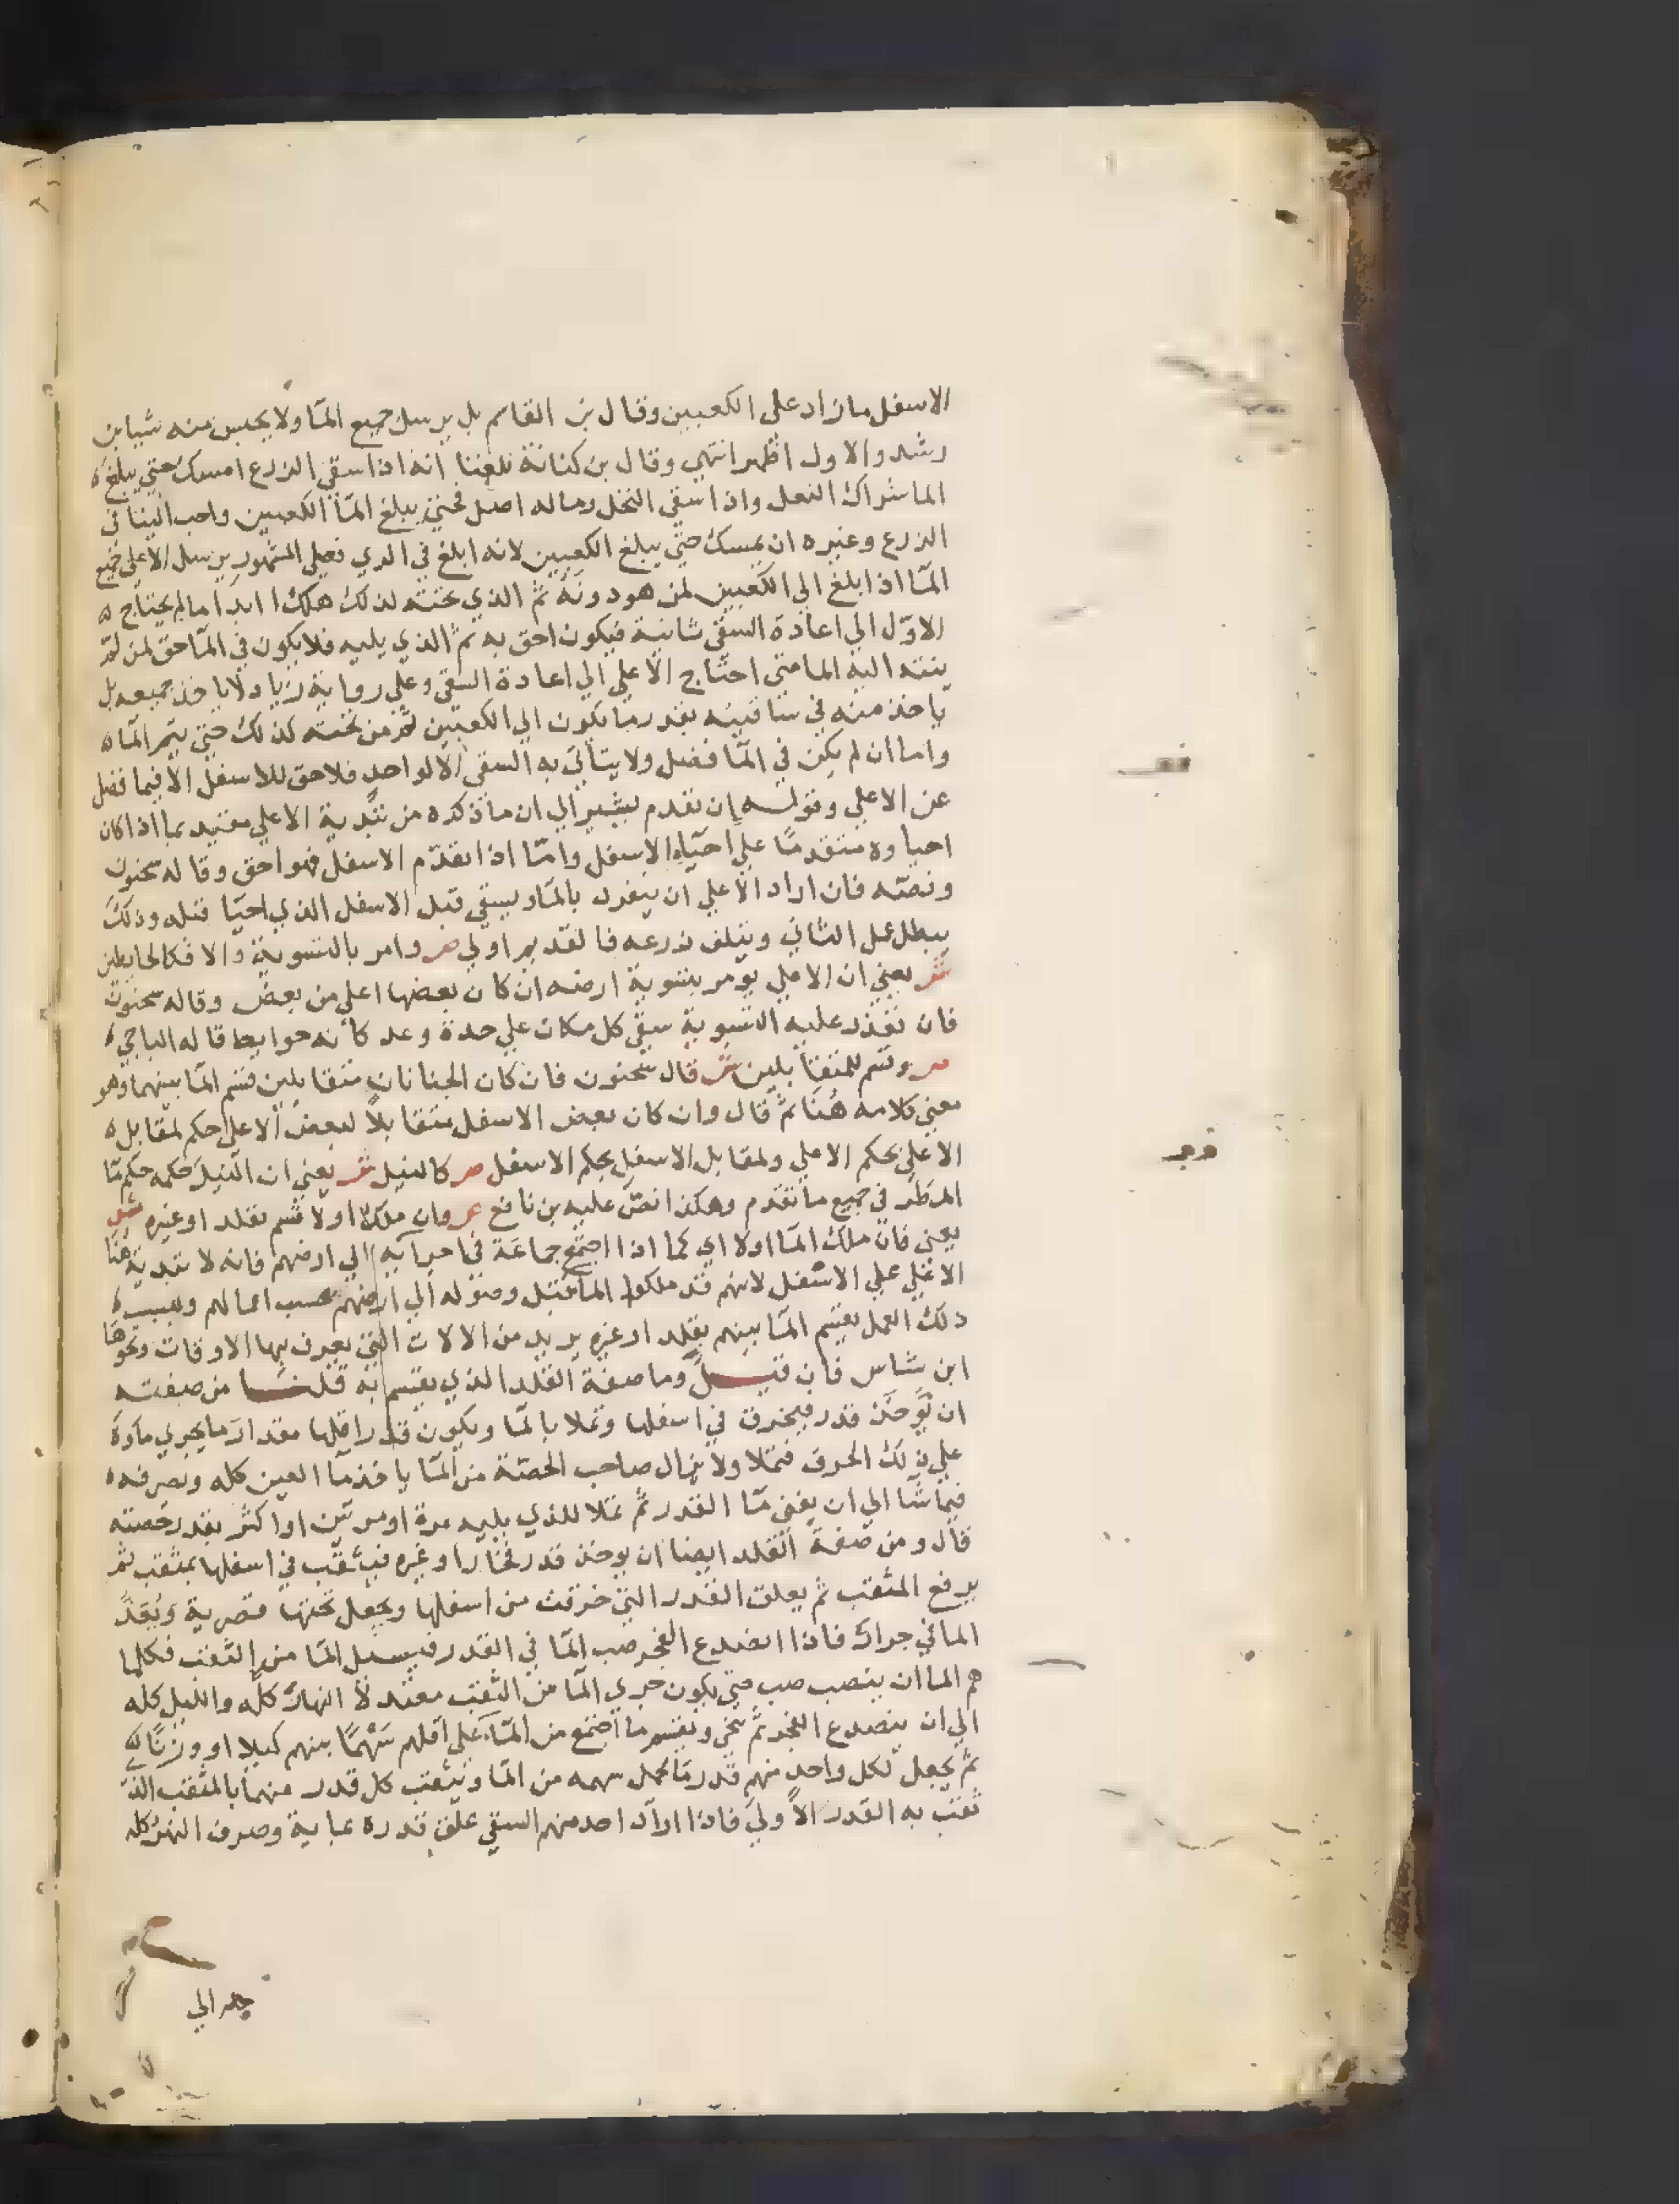 الاسفل ما زاد على الكعبين وقال بن القاسم بل يرسل جميع الما ولا يحبس منه شيا بن
رشد والاول اظهر انتهي وقال بن كنانة بلغنا انه اذا سقي الزرع امسك حتي يبلغ
الما شراك النعل واذا سقي النخل وما له اصل فحتي يبلغ الما الكعبين واحب الينا في
الزرع وغيره ان يمسك حتي يبلغ الكعبين لانه ابلغ في الري فعلي المشهور يرسل الاعلي جميع
الما اذا بلغ الي الكعبين لمن هو دونه ثم الذي تحته لذلك هكذا ابدا ما لم يحتاج
الاول الي اعادة السقي ثانية فيكون احق به ثم الذي يليه فلا يكون في الما حق لمن لم
ينته اليه الما متي احتاج الاعلي الي اعادة السقي وعلي رواية زياد لا ياخذ جميعه بل
ياخذ منه في ساقيته بقدر ما يكون الي الكعبين ثم من تحته كذلك حتي يتم الما
واما ان لم يكن في الما فضل ولا يتاتي به السقي الا لواحد فلا حق للاسفل الا فيما فضل
عن الاعلي وقوله ان تقدم يشير الي ان ما ذكره من تبدية الاعلي مقيد بما اذا كان
احياوه متقدما علي احياء الاسفل واما اذا تقدم الاسفل فهو احق وقاله سحنون
ونصه فان اراد الاعلي ان ينفرد بالما ويسقي قبل الاسفل الذي احيا قبله وذلك
يبطل عمل الثاني ويتلف زرعه فالقديم اولي ص وامر بالتسوية والا فكالحايطين
ش يعني ان الاعلي يومر بتسوية ارضه ان كان بعضها اعلي من بعض وقاله سحنون
فان تعذر عليه التسوية سقي كل مكان علي حدة وعد كأنه حوايط قاله الباجي
ص وقسم للمتقابلين ش قال سحنون فان كان الجنانان متقابلين قسم الما بينهما وهو
معني كلامه هنا ثم قال وان كان بعض الاسفل متقابلا لبعض الاعلي حكم لمقابل
الاعلي بحكم الاعلي ولمقابل الاسفل بحكم الاسفل ص كالنيل ش يعني ان النيل حكمه حكم ما
المطر في جميع ما تقدم وهكذا نص عليه بن نافع ص وان ملك اولا قسم بقلد او غيره ش
يعني فان ملك الما اولا اي كما اذا اجتمع جماعة في اجرايه الي ارضهم فانه لا تبدية هنا
الاعلي علي الاسفل لانهم قد ملكوا الما قبل وصوله الي ارضهم بحسب اعمالهم وبسبب
ذلك العمل يقسم الما بينهم بقلد او غيره يريد من الالات التي يعرف بها الاوقات ونحوها
ابن شاس فان قيل وما صفة القلد الذي يقسم به قلنا من صفته
ان توخذ قدر فيخرق في اسفلها وتملا بالما ويكون قدر اقلها مقدار ما يجري ماوه
علي ذلك الخرق فتملا ولا يزال صاحب الحصة من الما ياخذ ما العين كله ويصرفه
فيما شا الي ان يفني ما القدر ثم تملا للذي يليه مرة او مرتين او اكثر بقدر حصته
قال ومن صفة القلد ايضا ان يوخذ قدر فخار او غيره فيثقب في اسفلها بمثقب ثم
يرفع المثقب ثم يعلق القدر التي خرقت من اسفلها ويجعل تحتها قصرية ويعد
الما في جرار فاذا انصدع الفجر صب الما في القدر فيسيل الما من الثقب فكلما
هم الما ان ينصب صب حتي يكون جري الما من الثقب معتدلا النهار كله والليل كله
الي ان ينصدع الفجر ثم ينحي ويقسم ما اجتمع من الما علي اقلهم سهما بينهم كيلا او وزنا
ثم يجعل لكل واحد منهم قدر ما يحمل سهمه من الما ويثقب كل قدر منهما بالمثقب الذي
ثقب به القدر الاولي فاذا اراد احد منهم السقي علق قدره بمايه وصرف النهر كله
الي